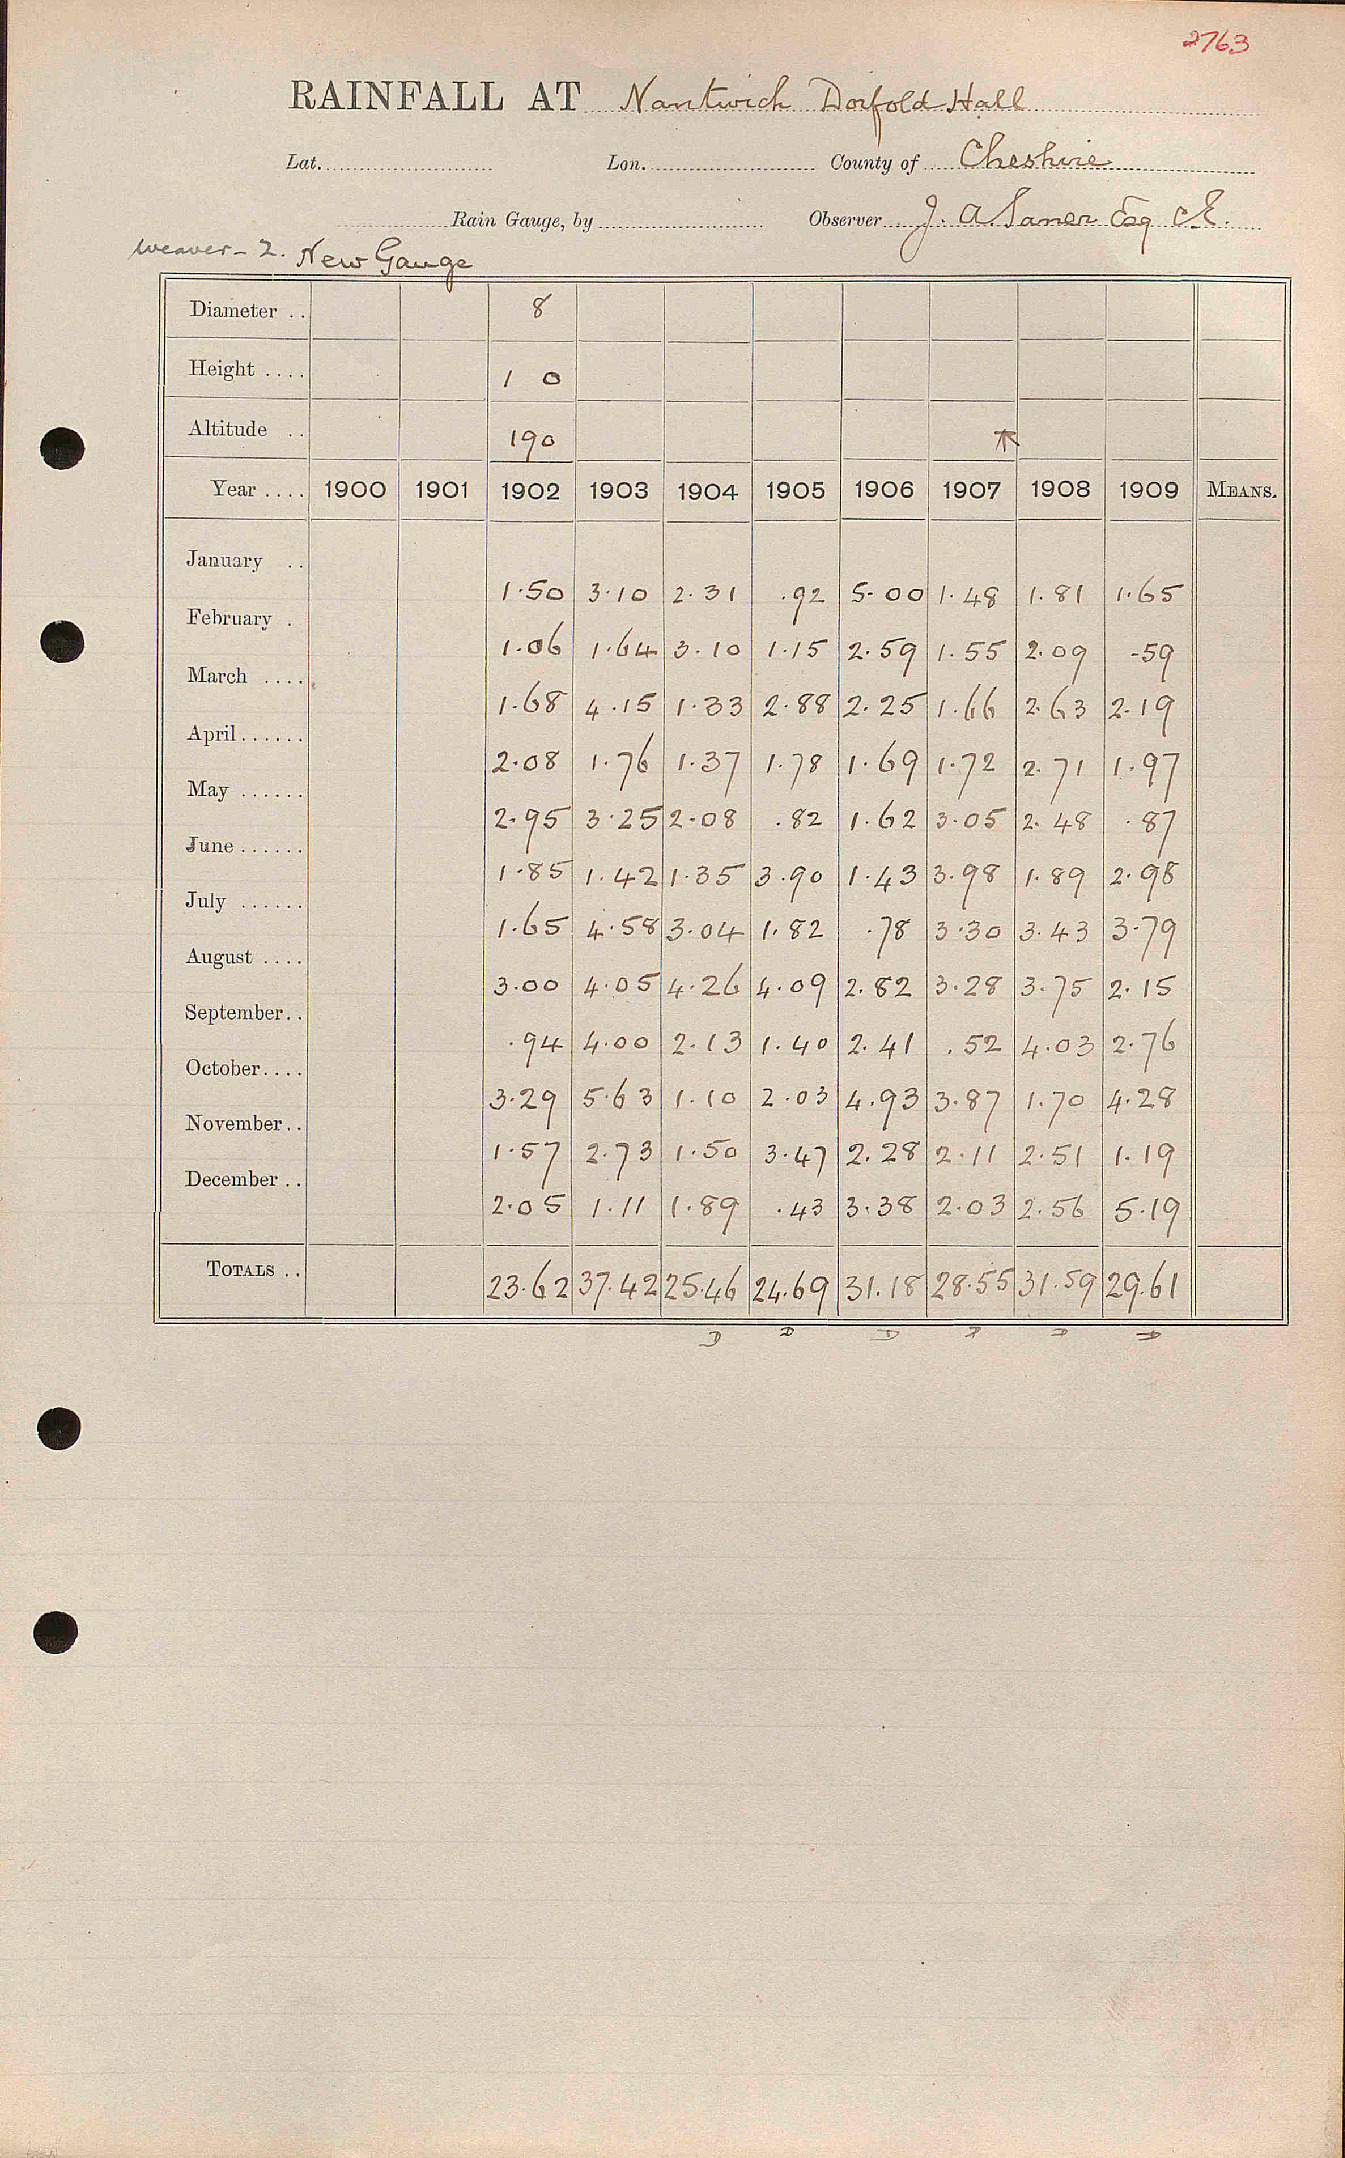 2763
RAINFALL AT Nantwich Dorfold Hall
Lat. Lon. County of Cheshire
Rain Gauge, by Observer J. A Saner Esq C.E.
Weaver - 2. New Gauge
Diameter .. 8
Height .... 1 0
Altitude .. 190
Year .... 1900 1901 1902 1903 1904 1905 1906 1907 1908 1909 MEANS.
January .. 1.50 3.10 2.31 .92 5.00 1.48 1.81 1.65
February . 1.06 1.64 3.10 1.15 2.59 1.55 2.09 .59
March .... 1.68 4.15 1.33 2.88 2.25 1.66 2.63 2.19
April...... 2.08 1.76 1.37 1.78 1.69 1.72 2.71 1.97
May ...... 2.95 3.25 2.08 .82 1.62 3.05 2.48 .87
June ...... 1.85 1.42 1.35 3.90 1.43 3.98 1.89 2.98
July ...... 1.65 4.58 3.04 1.82 .78 3.30 3.43 3.79
August .... 3.00 4.05 4.26 4.09 2.82 3.28 3.75 2.15
September.. .94 4.00 2.13 1.40 2.41 .52 4.03 2.76
October.... 3.29 5.63 1.10 2.03 4.93 3.87 1.70 4.28
November.. 1.57 2.73 1.50 3.47 2.28 2.11 2.51 1.19
December .. 2.05 1.11 1.89 .43 3.38 2.03 2.56 5.19
TOTALS .. 23.62 37.42 25.46 24.69 31.18 28.55 31.59 29.61
D D D D D D